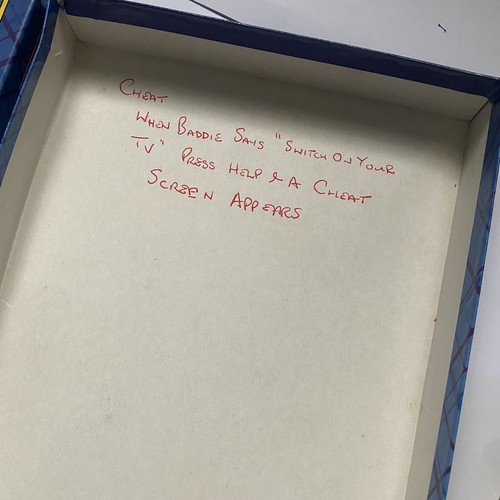 CHEAT
WHEN BADDIE SAYS "SWITCH ON YOUR
TV" PRESS HELP & A CHEAT
SCREEN APPEARS